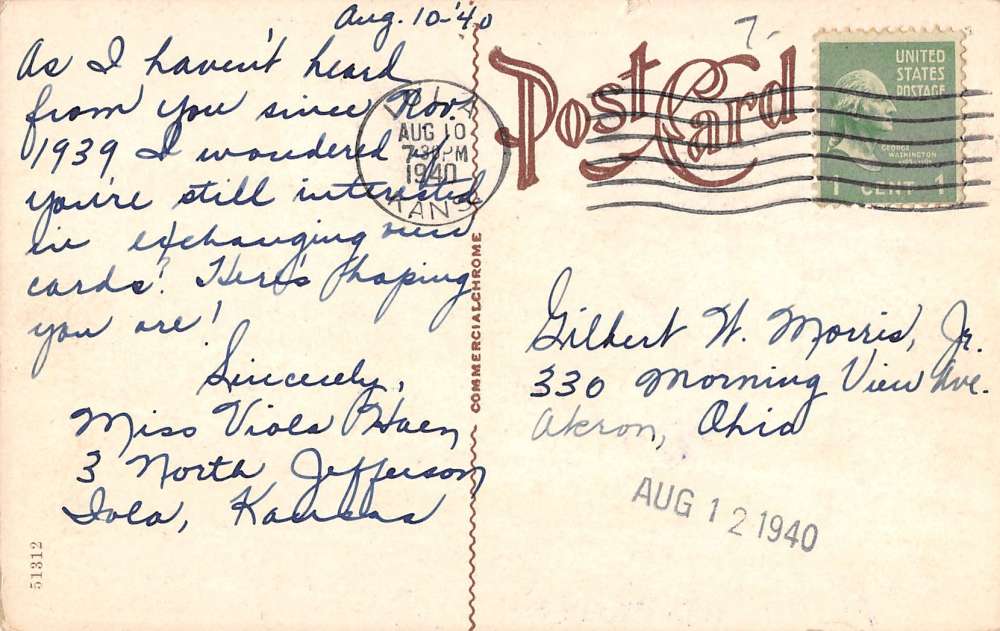 Aug. 10-'40
As I haven't heard
from you since Nov.
1939 I wondered if
you're still interested
in exchanging view
cards? Here's hoping
you are!
Sincerely,
Miss Viola
3 North Jefferson
Iola, Kansas
51312
COMMERCIALCHROME
7-
Post Card
AUG 10
7-30PM
1940
KANS
UNITED
STATES
POSTAGE
GEORGE
WASHINGTON
1 CENT 1
Gilbert W. Morris, Jr.
330 Morning View Ave.
Akron, Ohio
AUG 12 1940